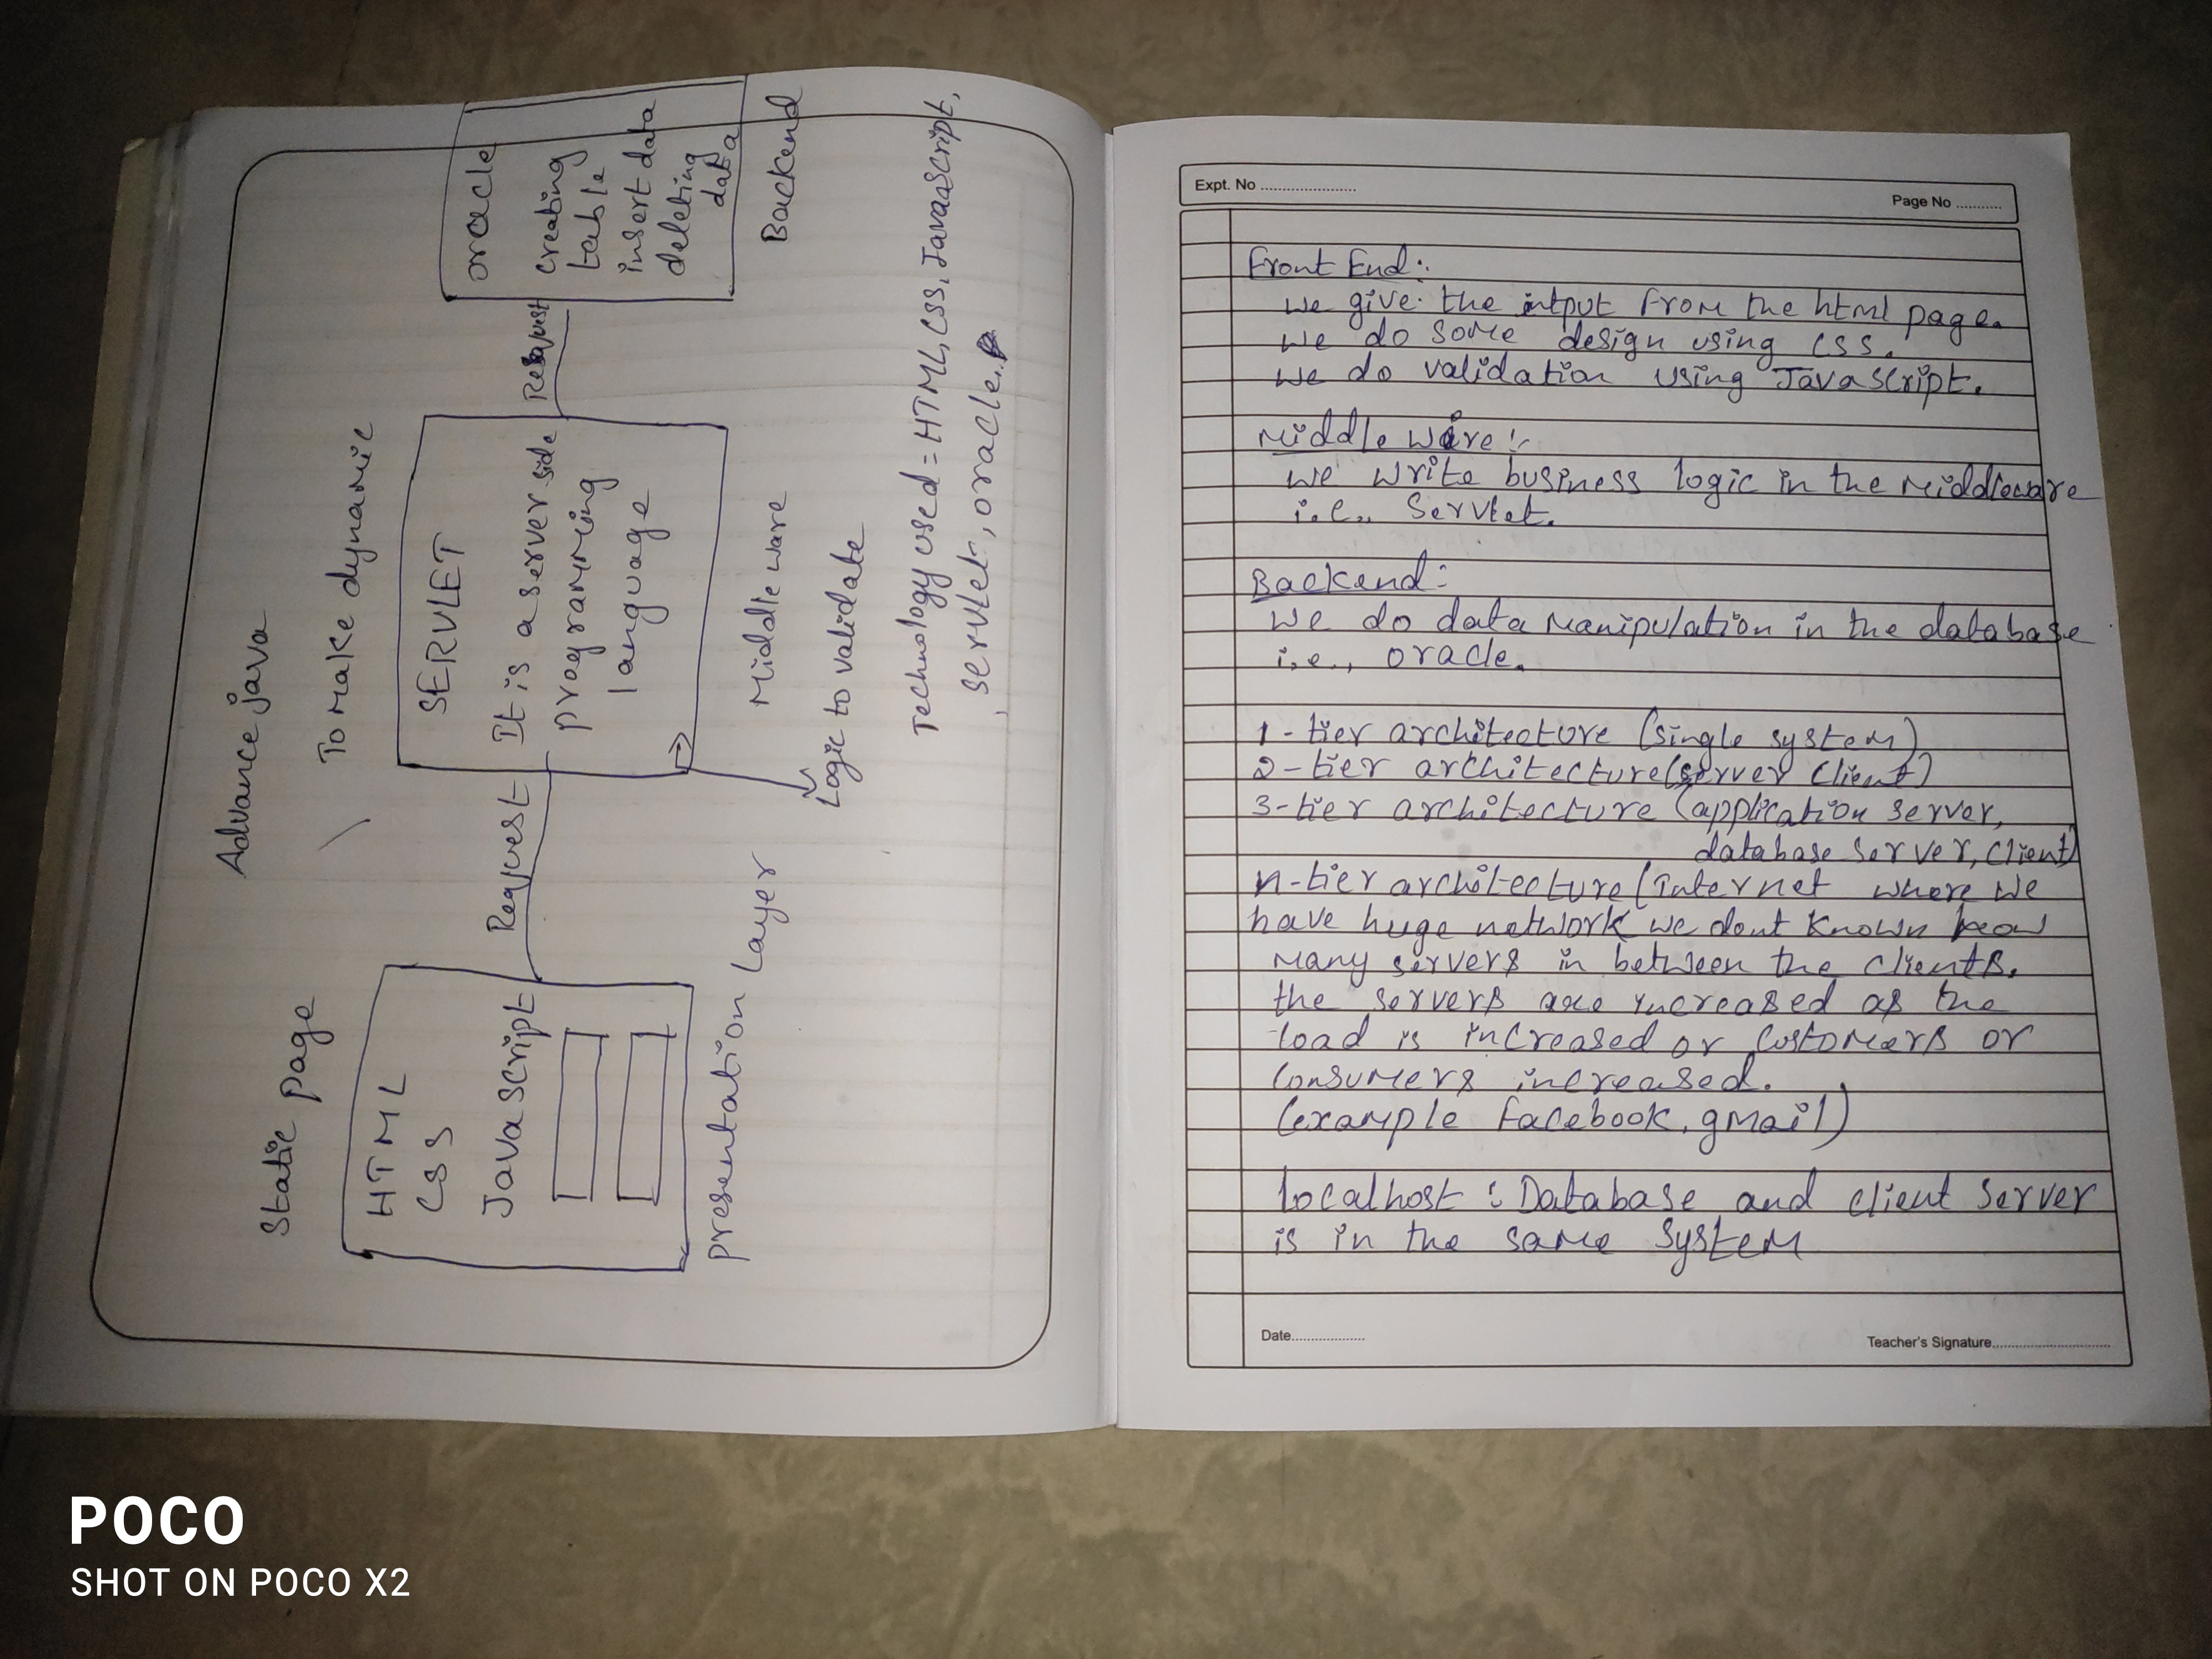 Advance java
Static page
To make dynamic
HTML
CSS
JavaScript
presentation Layer
Request
SERVLET
It is a server side
programming
language
Middle ware
Logic to validate
Request
oracle
creating
table
insert data
deleting
data
Backend
Technology used = HTML, CSS, JavaScript,
servlet, oracle.
Expt. No
Page No
Front End:
we give the intput from the html page.
we do some design using css.
we do validation using JavaScript.
Middle ware :-
we write business logic in the middleware
i.e., Servlet.
Backend:
we do data manipulation in the database
i.e., oracle.
1-tier architecture (single system)
2-tier architecture (server client)
3-tier architecture (application server,
database server, client)
n-tier architecture (internet where we
have huge network we dont known how
many servers in between the clients.
the servers are increased as the
load is increased or customers or
consumers increased.
(example facebook, gmail)
localhost : Database and client server
is in the same system
Date
Teacher's Signature
POCO
SHOT ON POCO X2